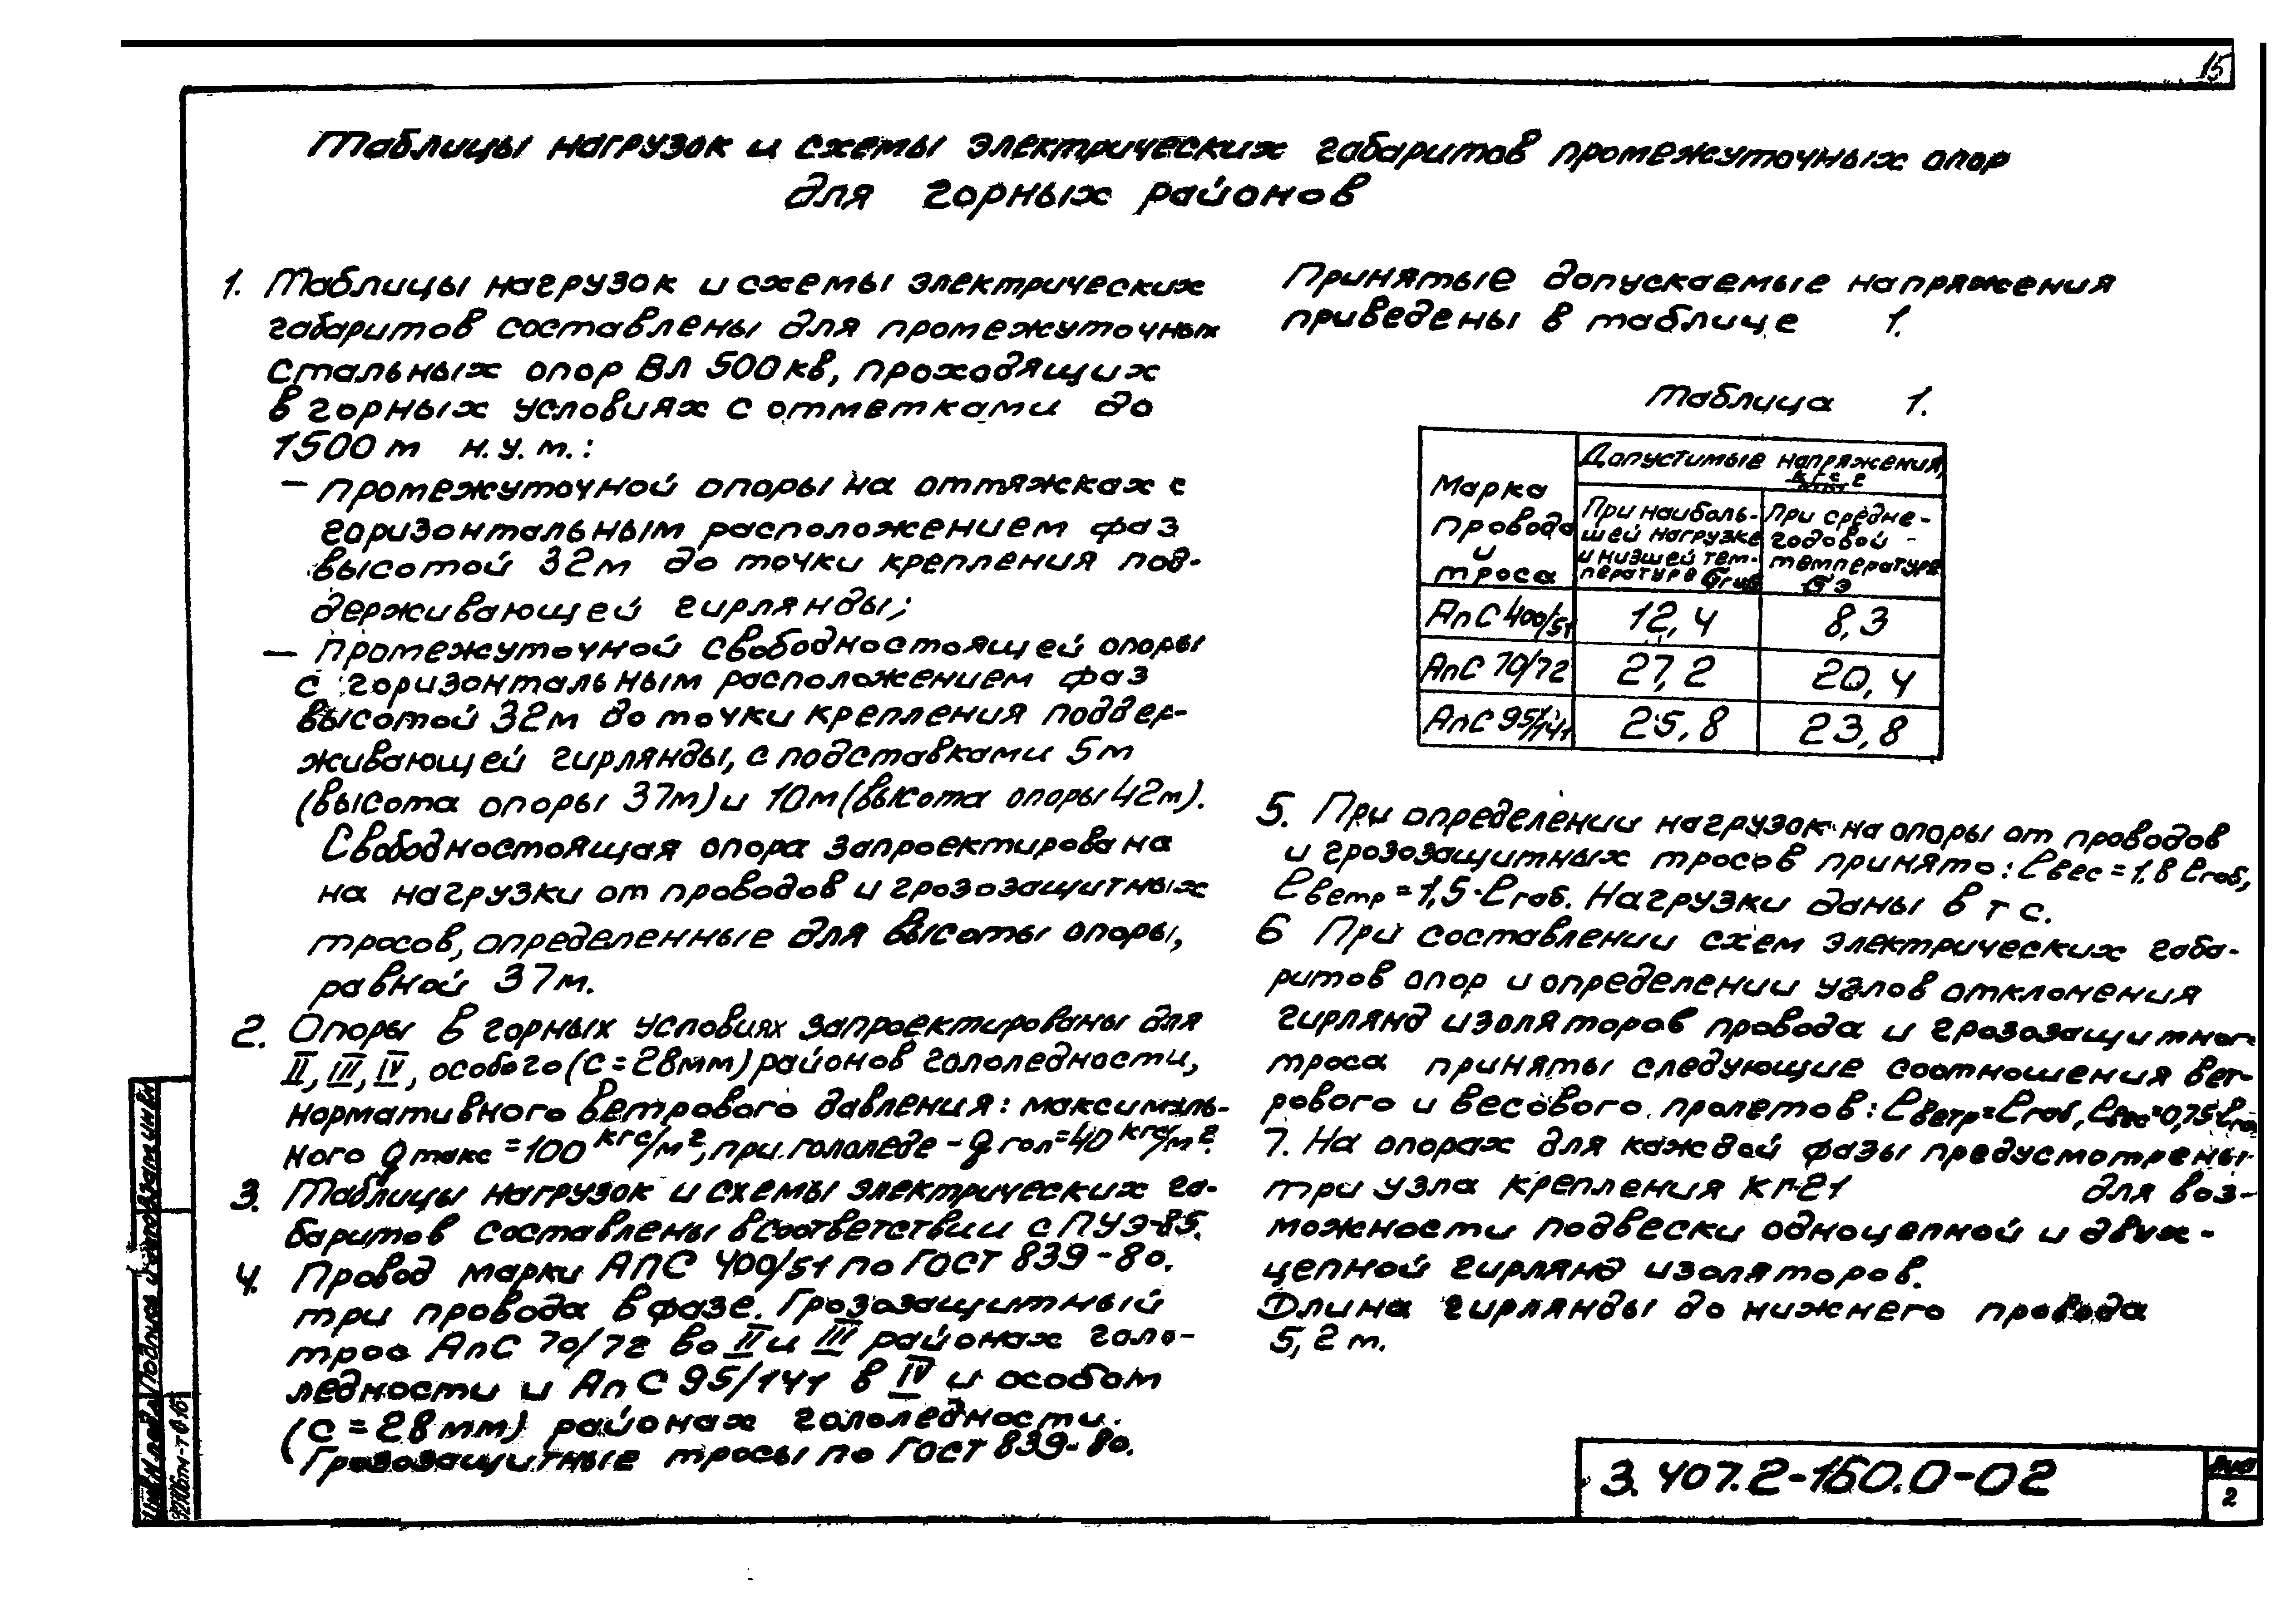 15
Таблицы нагрузок и схемы электрических габаритов промежуточных опор
для горных районов
1. Таблицы нагрузок и схемы электрических
габаритов составлены для промежуточных
стальных опор ВЛ 500кв, проходящих
в горных условиях с отметками до
1500 м н.у.м.:
— промежуточной опоры на оттяжках с
горизонтальным расположением фаз
высотой 32м до точки крепления под-
держивающей гирлянды;
— промежуточной свободностоящей опоры
с горизонтальным расположением фаз
высотой 32м до точки крепления поддер-
живающей гирлянды, с подставками 5м
(высота опоры 37м) и 10м (высота опоры 42м).
Свободностоящая опора запроектирована
на нагрузки от проводов и грозозащитных
тросов, определенные для высоты опоры,
равной 37м.
2. Опоры в горных условиях запроектированы для
II, III, IV, особого (С=28мм) районов гололедности,
нормативного ветрового давления: максималь-
ного qмакс =100 кгс/м², при гололеде - qгол=40 кгс/м².
3. Таблицы нагрузок и схемы электрических га-
баритов составлены в соответствии с ПУЭ-85.
4. Провод марки АпС 400/51 по ГОСТ 839-80.
три провода в фазе. Грозозащитный
трос АпС 70/72 во II и III районах голо-
ледности и АпС 95/141 в IV и особом
(С=28мм) районах гололедности.
Грозозащитные тросы по ГОСТ 839-80.
Принятые допускаемые напряжения
приведены в таблице 1.
Таблица 1.
Марка провода и троса
Допустимые напряжения,
При наиболь-
шей нагрузке
и низшей тем-
пературе
При средне-
годовой
температуре
σэ
АпС 400/51 12,4 8,3
АпС 70/72 27,2 20,4
АпС 95/141 25,8 23,8
5. При определении нагрузок на опоры от проводов
и грозозащитных тросов принято: ℓвес=1,8 ℓгаб,
ℓветр=1,5·ℓгаб. Нагрузки даны в тс.
6 При составлении схем электрических габа-
ритов опор и определении углов отклонения
гирлянд изоляторов провода и грозозащитного
троса приняты следующие соотношения вет-
рового и весового пролетов: ℓветр=ℓгаб, ℓвес=0,75ℓгаб
7. На опорах для каждой фазы предусмотрены
три узла крепления КГ-21 для воз-
можности подвески одноцепной и двух-
цепной гирлянд изоляторов.
Длина гирлянды до нижнего провода
5,2 м.
3.407.2-160.0-02
Лист
2